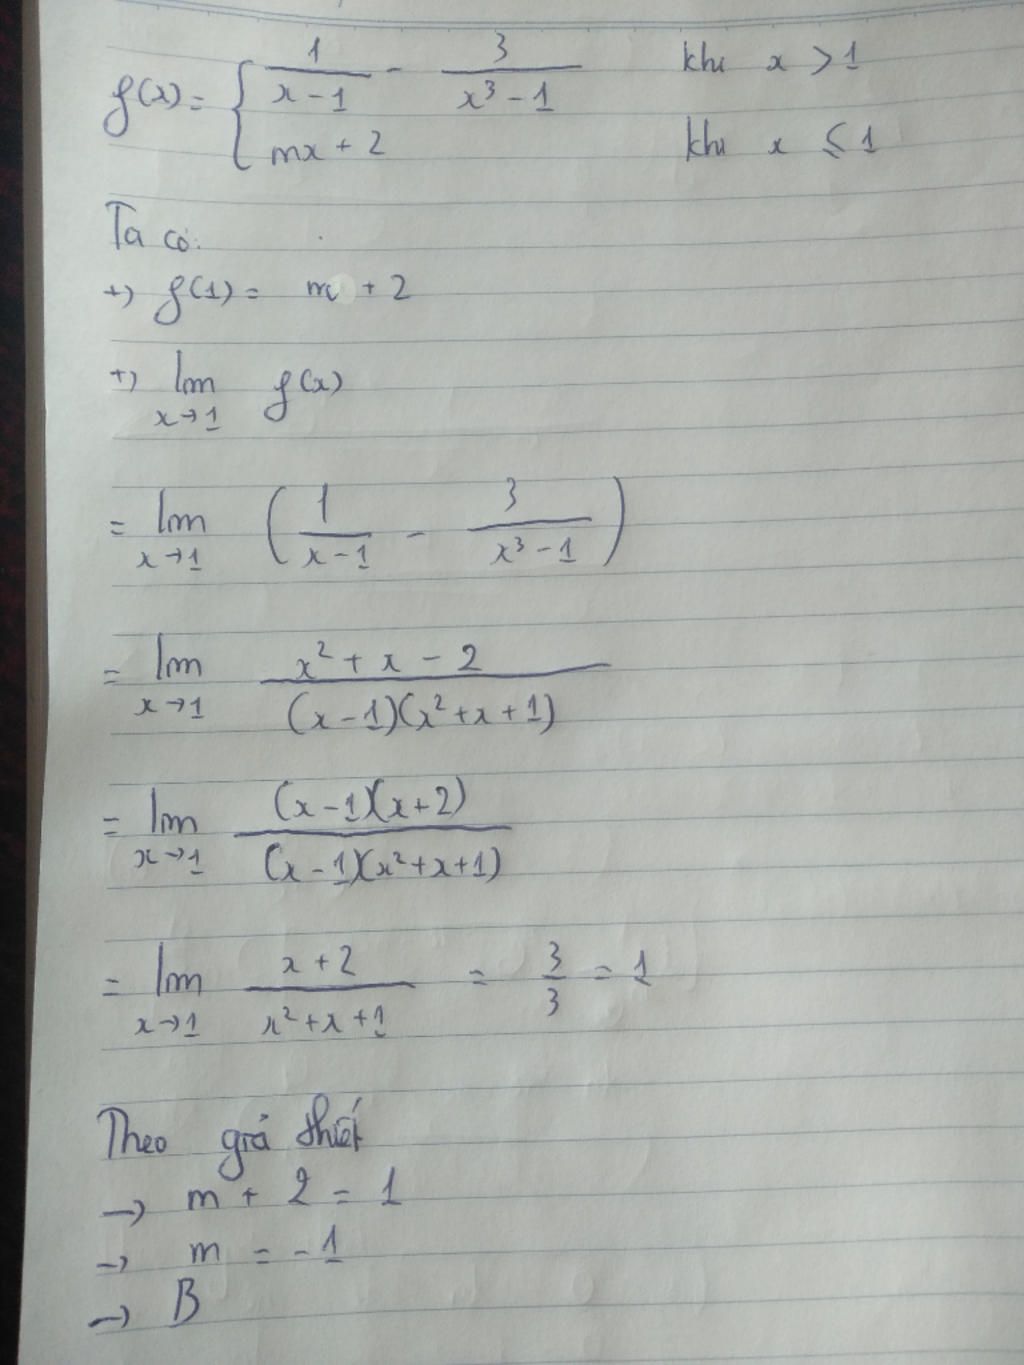 f(x) = { 1/(x - 1) - 3/(x³ - 1) khi x > 1
mx + 2 khi x ≤ 1
Ta có:
+) f(1) = m + 2
+) lim x→1 f(x)
= lim x→1 ( 1/(x - 1) - 3/(x³ - 1) )
= lim x→1 (x² + x - 2)/((x - 1)(x² + x + 1))
= lim x→1 ((x - 1)(x + 2))/((x - 1)(x² + x + 1))
= lim x→1 (x + 2)/(x² + x + 1) = 3/3 = 1
Theo giả thiết
→ m + 2 = 1
→ m = - 1
→ B